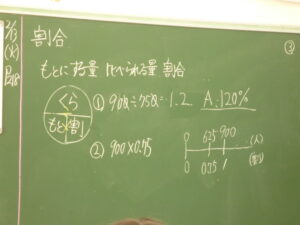 2/13
(火)
P218
割合
③
もとにする量 比べられる量 割合
くら
もと 割
① 900÷750=1.2 A.120%
② 900×0.75
0 675 900 (人)
0 0.75 1 (割合)